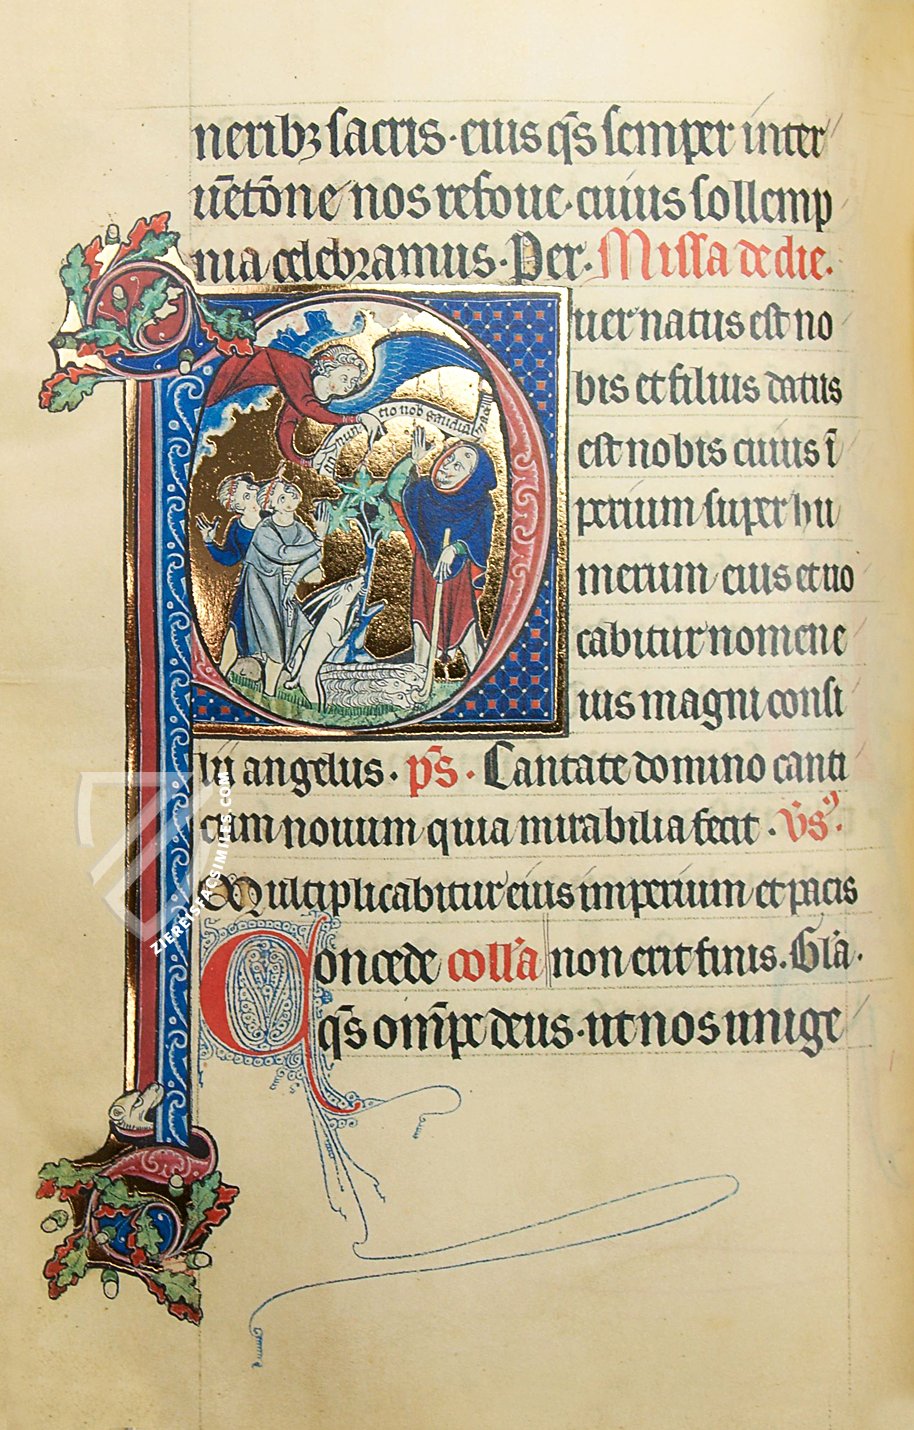 neribꝫ sacris · eius q̄s semper inter
uētōne nos refoue · cuius sollemp
nia celebramus · Per · Missa de die ·
Puer natus est no
bis et filius datus
est nobis cuius ī
perium super hu
merum eius et uo
cabitur nomen e
ius magni consi
annuntio uob gaudiū
lii angelus · p̄s · Cantate domino canti
cum nouum quia mirabilia fecit · v̄s ·
Multiplicabitur eius imperium et pacis
Concede coll'a non erit finis · Gl'a ·
q̄s om̄pc deus · ut nos unige
ZIEREIS FACSIMILES.COM